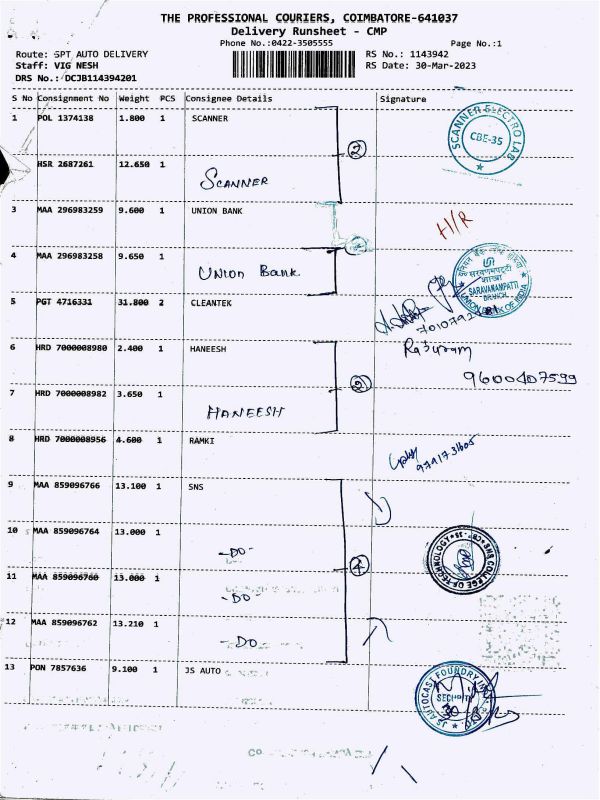 THE PROFESSIONAL COURIERS, COIMBATORE-641037
Delivery Runsheet - CMP
Phone No.:0422-3505555 Page No.:1
Route: SPT AUTO DELIVERY RS No.: 1143942
Staff: VIG NESH RS Date: 30-Mar-2023
DRS No.: DCJB114394201
S No Consignment No Weight PCS Consignee Details Signature
1 POL 1374138 1.800 1 SCANNER
SCANNER ELECTRO LAB
CBE-35
HSR 2687261 12.650 1 SCANNER
3 MAA 296983259 9.600 1 UNION BANK
H/R
4 MAA 296983258 9.650 1 UNION BANK
SARAVANAMPATTI
BRANCH
UNION BANK OF INDIA
5 PGT 4716331 31.800 2 CLEANTEK
6 HRD 7000008980 2.400 1 HANEESH
9600407599
7 HRD 7000008982 3.650 1 HANEESH
8 HRD 7000008956 4.600 1 RAMKI
9791731605
9 MAA 859096766 13.100 1 SNS
10 MAA 859096764 13.000 1 -DO-
4
SNS COLLEGE OF TECHNOLOGY
11 MAA 859096760 13.000 1 -DO-
12 MAA 859096762 13.210 1 -DO-
13 PON 7857636 9.100 1 JS AUTO
JS AUTOCAST FOUNDRY
SECURITY